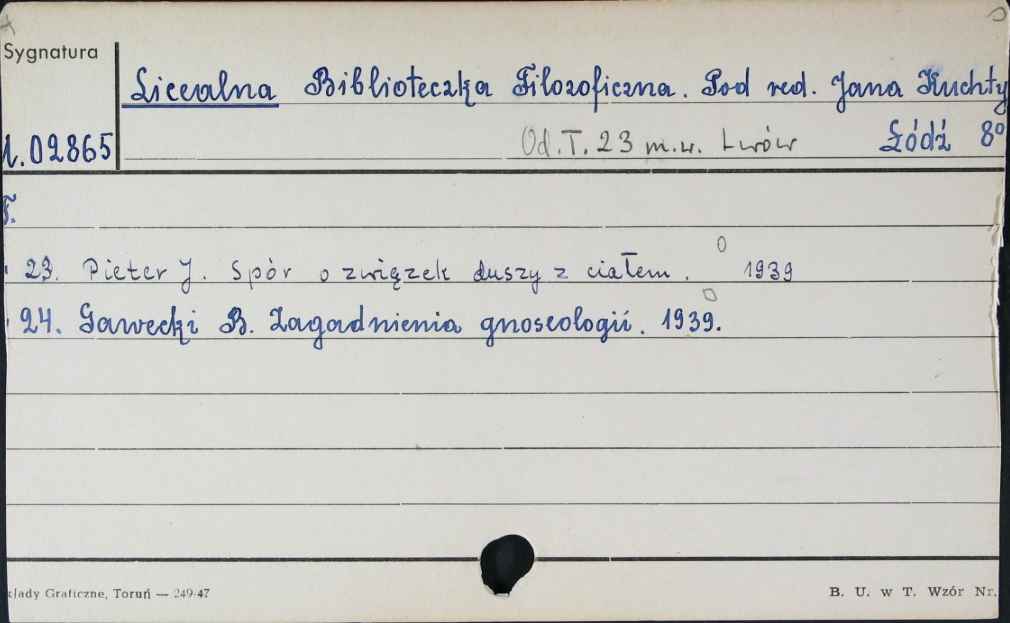 Sygnatura
Licealna Biblioteczka Filozoficzna. Pod red. Jana Kuchty
Od. T. 23 m.w. Lwów Łódź 8º
1.02865
T.
23. Pieter J. Spór o związek duszy z ciałem. 1939
24. Gawecki B. Zagadnienia gnoseologii. 1939.
kłady Graficzne, Toruń — 249/47 B. U. w T. Wzór Nr.